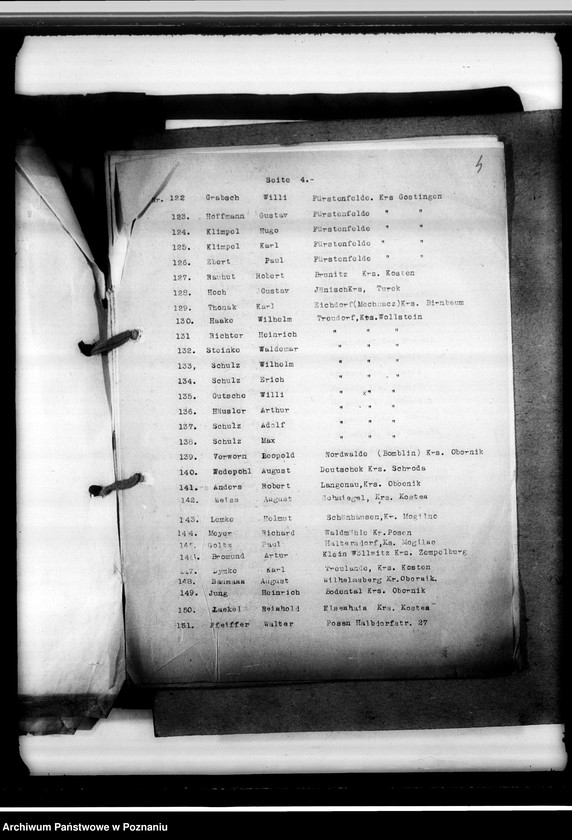 Seite 4.-
Nr. 122 Grabsch Willi Fürstenfelde. Krs Gostingen
123. Hoffmann Gustav Fürstenfelde " "
124. Klimpel Hugo Fürstenfelde " "
125. Klimpel Karl Fürstenfelde " "
126. Ebert Paul Fürstenfelde " "
127. Rauhut Robert Krs. Kosten
128. Hoch Gustav JänischKrs, Turek
129. Thonak Karl Eichdorf(Mechnacz)Krs. Birnbaum
130. Haake Wilhelm Treudorf,Krs.Wollstein
131 Richter Heinrich " " "
132. Steinke Waldemar " " "
133, Schulz Wilhelm " " "
134. Schulz Erich " " "
135. Gutsche Willi " x" "
136. Häusler Arthur " " "
137. Schulz Adolf " " "
138. Schulz Max " " "
139. Vorworn Leopold Nordwalde (Bomblin) Krs. Obornik
140. Wedepohl August Deutschek Krs. Schroda
141. Anders Robert Langenau,Krs. Obornik
142. Weiss August Schmiegel, Krs. Kosten
143. Lemke Helmut Schönhausen,Kr. Mogilno
144. Meyer Richard Waldmühle Kr.Posen
145. Goltz Paul Haltersdorf,Ks. Mogilno
146. Bromund Artur Klein Wöllwitz Krs. Zempelburg
147. Dymke Karl Treulande, Krs. Kosten
148. Baumann August Wilhelmsberg Kr.Obornik.
149. Jung Heinrich Bodental Krs. Obornik
150. Laekel Reinhold Eisenhain Krs. Kosten
151. Pfeiffer Walter Posen Halbdorfstr. 27
Archiwum Państwowe w Poznaniu